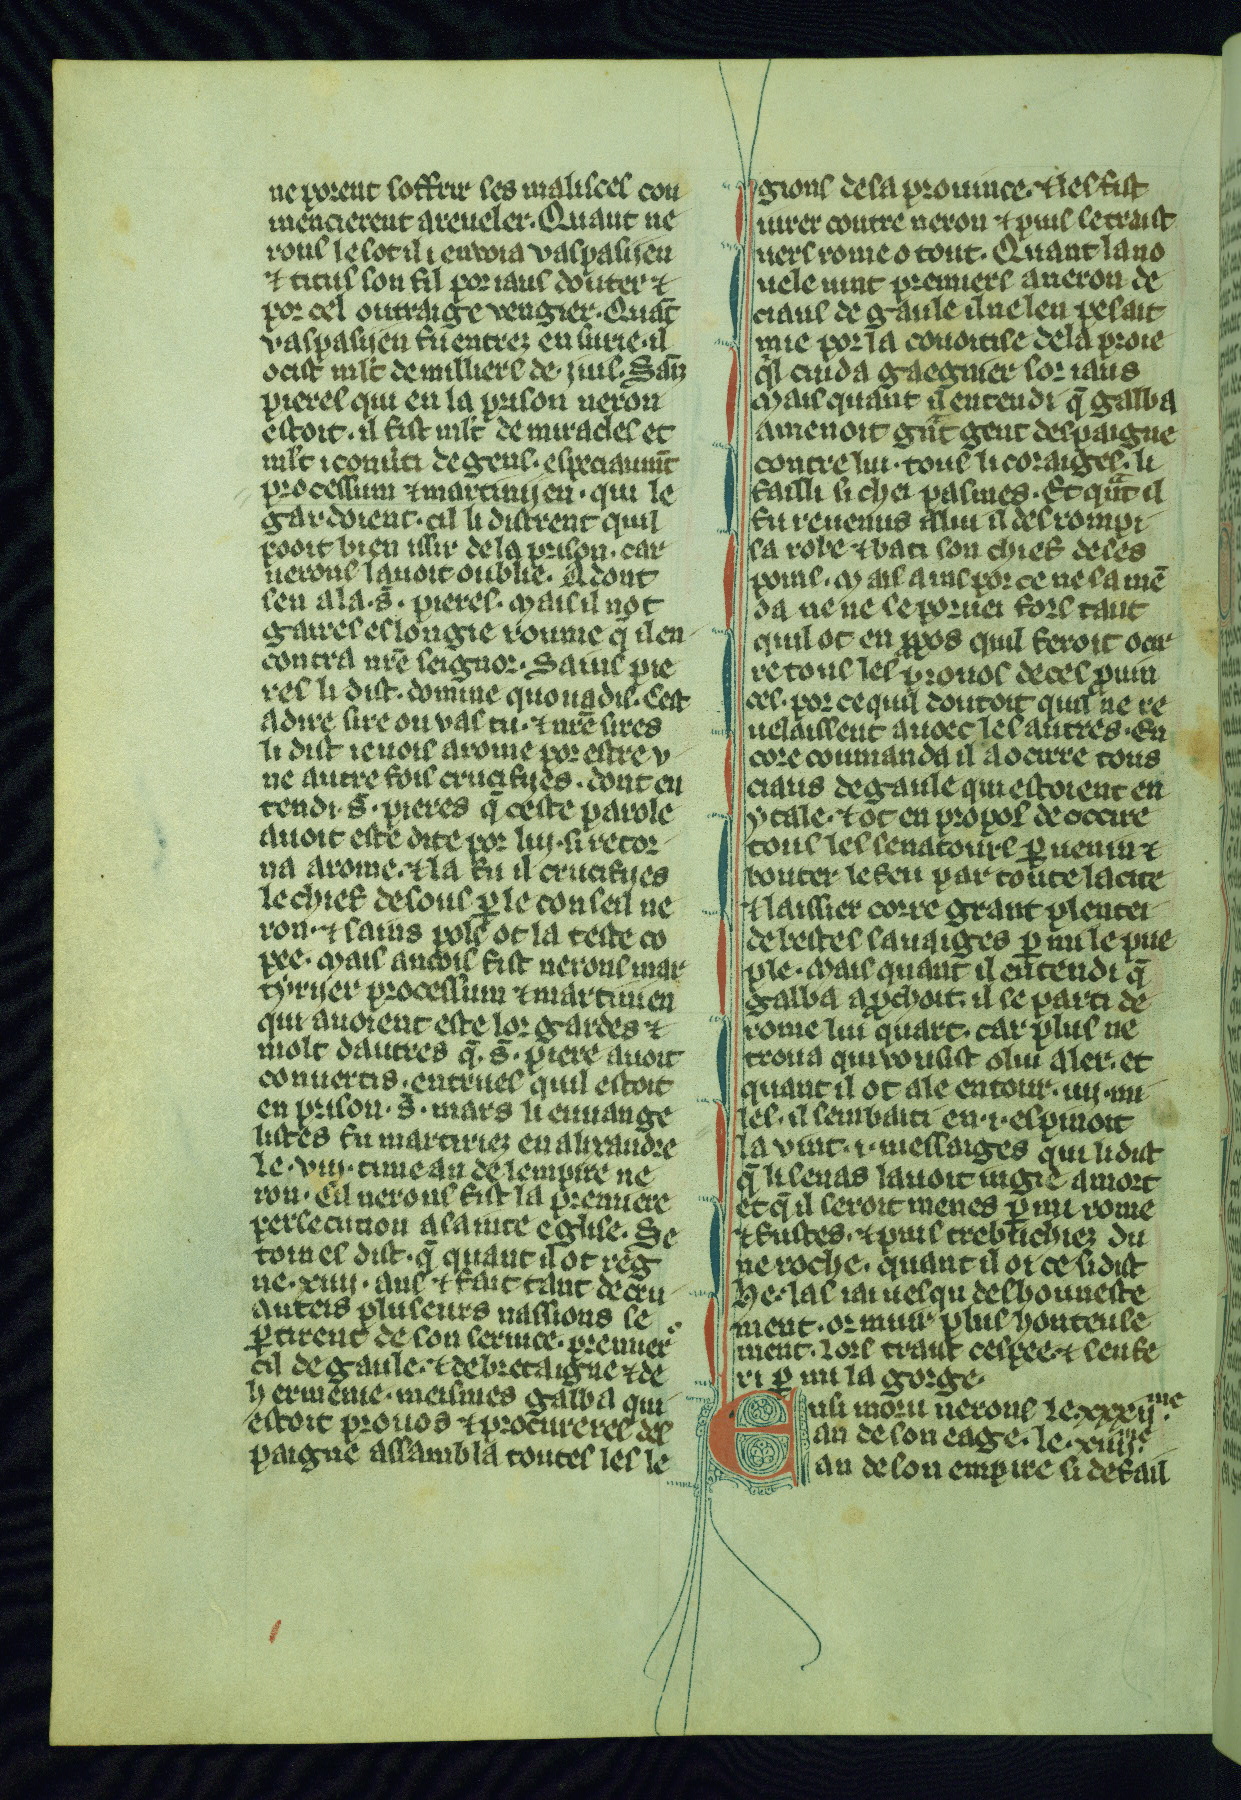 ne porent soffrir les malisces con
mencierent areueler. Quant ne
rons le sot il i enuoia vaspasijen
⁊ titus son fil por iaus douter ⁊
por cel outraige vengier. Quāt
vaspasijen fu entrez en surie. il
ocist mlt de milliers de. juis. San
pieres qui en la prison neron
estoit. il fist mlt de miracles et
mlt i conuti de gens. especiaumt
processum ⁊ martinijen. qui le
gardoient. cil li distrent quil
pooit bien issir de la prison. car
nerons lauoit oublie. Adont
sen ala. s̄. pieres. Mais il not
gaires eslongie roume q̄ il en
contra nr̄e seignor. Sains pie
res li dist. domine quo uadis. Cest
adire sire ou vas tu. ⁊ nr̄e sires
li dist ie uois arome por estre v
ne autre fois crucifijes. dont en
tendi. s̄. pieres q̄ ceste parole
auoit este dite por luj. si retor
na arome. ⁊ la fu il crucifijes
le chief desous ꝑ le conseil ne
ron. ⁊ sains pols ot la teste co
pee. Mais ancois fist nerons mar
tyrijer processum ⁊ martinien
qui auoient este lor gardes ⁊
molt dautres q̄. s̄. piere auoit
conuertis. entrues quil estoit
en prison. s̄. mars li euuange
listes fu marturiez en alixandre
le. viij. time an de lempire ne
ron. Cil nerons fist la premiere
persecution a sainte eglise. Se
tomes dist. q̄ quant il ot reg
ne. xiiij. ans ⁊ fait tant de cru
auteis pluseurs nassions se
ꝑtirent de son seruice. premier
cil de gaule. ⁊ de bretaigne ⁊ de
hermenie. meismes galba qui
estoit prouos ⁊ procureres des
paigne assambla toutes les le
gions de la prouince. ⁊ les fist
iurer contre neron ⁊ puis se traist
uers rome o tout. Quant la no
uele uint premiers a neron de
ciaus de gaule il ne len pesait
mie por la couoitise de la proie
q̄l cuida gaegnier sor iaus
Mais quant il entendi q̄ galba
amenoit gnt gent despaigne
contre lui. tous li coraiges. li
failli si chei pasmes. Et qnt il
fu reuenus a lui il desrompi
sa robe ⁊ bati son chief de ses
poins. Mais ains por ce ne samē
da ne ne se poruei fors tant
quil ot en ꝓpos quil feroit ocir
re tous les prouos de ces ꝓuin
ces. por ce quil doutoit quil ne re
uelaissent auoec les autres. En
core coumanda il a ocirre tous
ciaus de gaule qui estoient en
ytale. ⁊ ot en propos de occire
tous les senatours ꝑ uenin ⁊
bouter le feu par toute la cite
⁊ laissier corre grant plentei
de bestes sauaiges ꝑ mi le pue
ple. Mais quant il entendi q̄
galba aprchoit. il se parti de
rome lui quart. car plus ne
troua qui vousist o lui aler. et
quant il ot ale entour. iiij. mi
les. il sembaiti en. i. espinoit
la vint. i. messaiges qui li dist
q̄ li senas lauoit iugie a mort
et q̄ il seroit menes ꝑ mi rome
⁊ fustes. ⁊ puis trebuchiez du
ne roche. quant il oi ce si dist
he. las iai uesqu deshouneste
ment. or muir plus honteuse
ment. Lors traist cespee. ⁊ sen fe
ri ꝑ mi la gorge.
Ensi moru nerons le xxxij.me
an de son eage. le. xiiij.me
an de son empire si defail